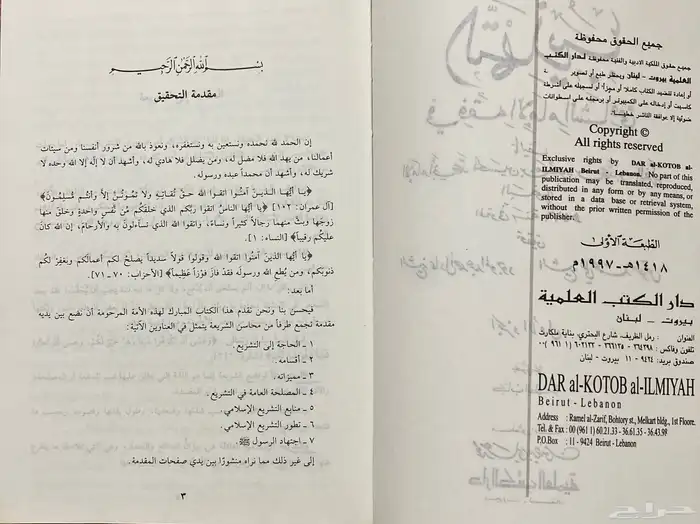 جميع الحقوق محفوظة
جميع حقوق الملكية الادبية والفنية محفوظة لدار الكتب
العلمية بيروت - لبنان ويحظر طبع أو تصوير
أو إعادة تنضيد الكتاب كاملاً أو مجزأ أو تسجيله على أشرطة
كاسيت أو إدخاله على الكمبيوتر أو برمجته على اسطوانات
ضوئية إلا بموافقة الناشر خطياً.
Copyright ©
All rights reserved
Exclusive rights by DAR al-KOTOB al-
ILMIYAH Beirut - Lebanon. No part of this
publication may be translated, reproduced,
distributed in any form or by any means, or
stored in a data base or retrieval system,
without the prior written permission of the
publisher.
الطبعة الأولى
١٤١٨هـ - ١٩٩٧م
دار الكتب العلمية
بيروت - لبنان
العنوان : رمل الظريف، شارع البحتري، بناية ملكارت
تلفون وفاكس : ٣٦٤٣٩٨ - ٣٦٦١٣٥ - ٦٠٢١٣٣ (٩٦١ ١) ٠٠
صندوق بريد: ٩٤٢٤ - ١١ بيروت - لبنان
DAR al-KOTOB al-ILMIYAH
Beirut - Lebanon
Address : Ramel al-Zarif, Bohtory st., Melkart bldg., 1st Floore.
Tel. & Fax : 00 (961 1) 60.21.33 - 36.61.35 - 36.43.98
P.O.Box : 11 - 9424 Beirut - Lebanon
بسم الله الرحمن الرحيم
مقدمة التحقيق
إن الحمد لله نحمده ونستعين به ونستغفره، ونعوذ بالله من شرور أنفسنا ومن سيئات
أعمالنا، من يهد الله فلا مضل له، ومن يضلل فلا هادي له، وأشهد أن لا إله إلا الله وحده لا
شريك له، وأشهد أن محمداً عبده ورسوله.
﴿يا أيُّها الذين آمنُوا اتقوا الله حقَّ تُقاتِهِ ولا تَمُوتُنَّ إلاَّ وأنتم مُسْلِمُونَ﴾
[آل عمران: ١٠٢] ﴿يا أيُّها الناسُ اتقوا ربَّكم الذي خلقكُم من نَفْسٍ واحدةٍ وخلقَ منها
زوجَها وبثَّ منهما رجالاً كثيراً ونساءً، واتقوا الله الذي تساءلونَ به والأرحامَ، إن الله كان
عليكُم رقيباً﴾ [النساء: ١].
﴿يا أيُّها الذين آمنُوا اتقوا الله وقولوا قولاً سديداً يصلحْ لكم أعمالَكم ويغفِرْ لكُم
ذنوبَكم، ومن يُطع الله ورسولَه فقدْ فازَ فوْزاً عظيماً﴾ [الأحزاب: ٧٠ - ٧١].
أما بعد:
فيحسن بنا ونحن نقدم هذا الكتاب المبارك لهذه الأمة المرحومة أن نضع بين يديه
مقدمة تجمع طرفاً من محاسن الشريعة يتمثل في العناوين الآتية:
١ - الحاجة إلى التشريع.
٢ - أقسامه.
٣ - مميزاته.
٤ - المصلحة العامة في التشريع.
٥ - منابع التشريع الإسلامي.
٦ - تطور التشريع الإسلامي.
٧ - اجتهاد الرسول ﷺ.
إلى غير ذلك مما نراه منشورًا بين يدي صفحات المقدمة.
٣
حراج